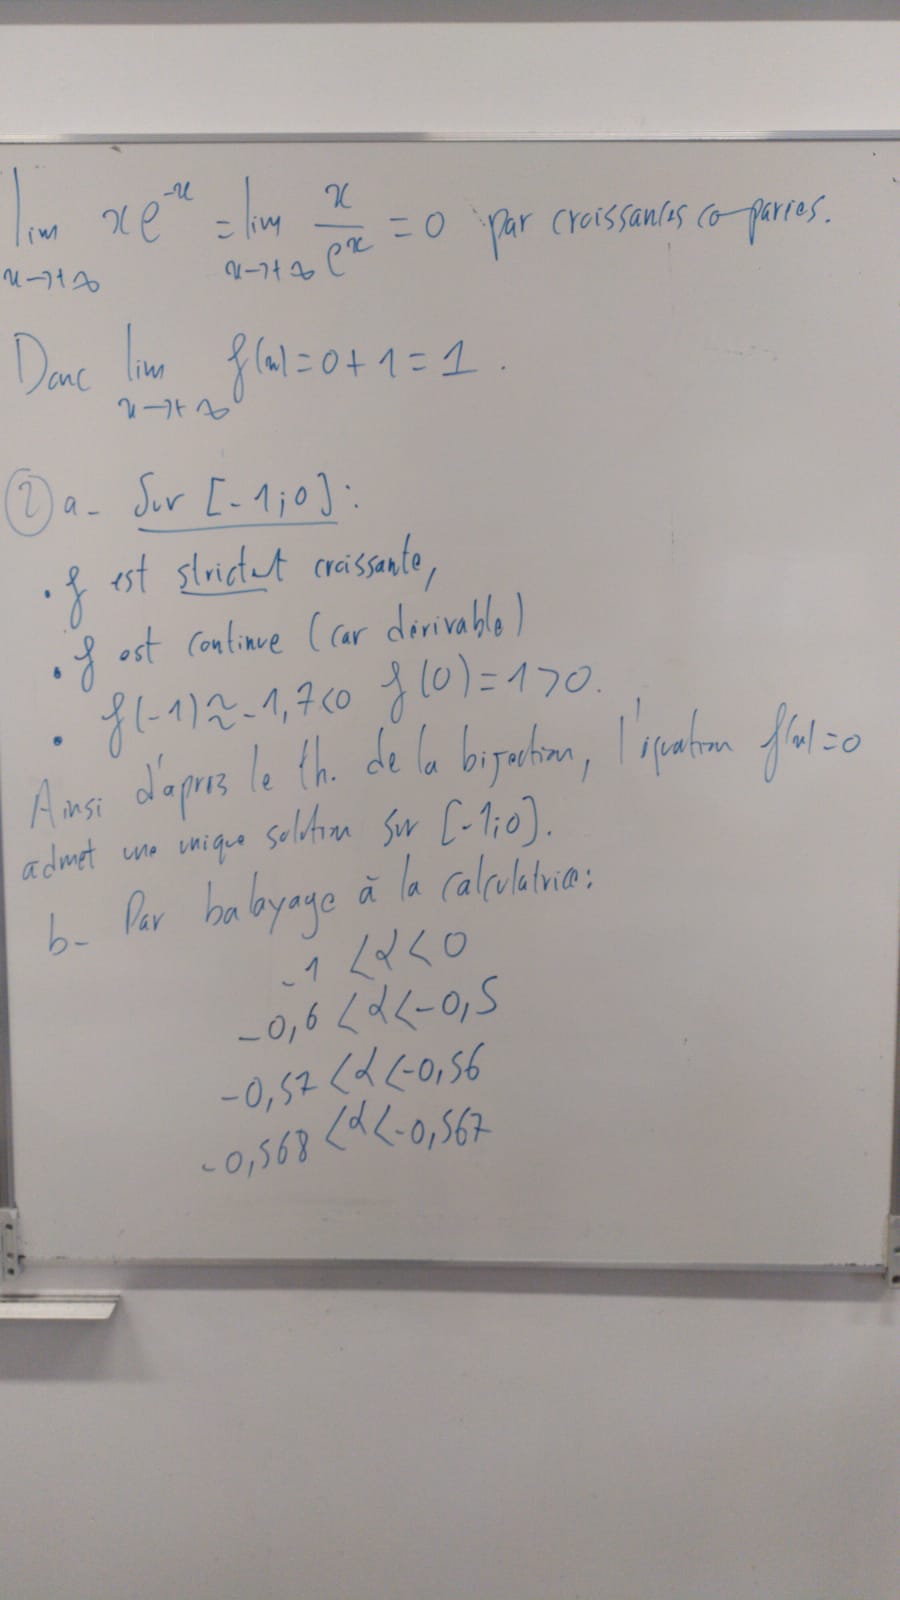 lim xe^-x = lim x/e^x = 0 par croissances comparées.
x→+∞ x→+∞
Donc lim f(x) = 0 + 1 = 1.
x→+∞
② a- Sur [-1;0]:
• f est strictnt croissante,
• f est continue (car dérivable)
• f(-1) ≈ -1,7 < 0 f(0) = 1 > 0.
Ainsi d'après le th. de la bijection, l'équation f(x) = 0
admet une unique solution sur [-1;0].
b- Par balayage à la calculatrice:
-1 < α < 0
-0,6 < α < -0,5
-0,57 < α < -0,56
-0,568 < α < -0,567